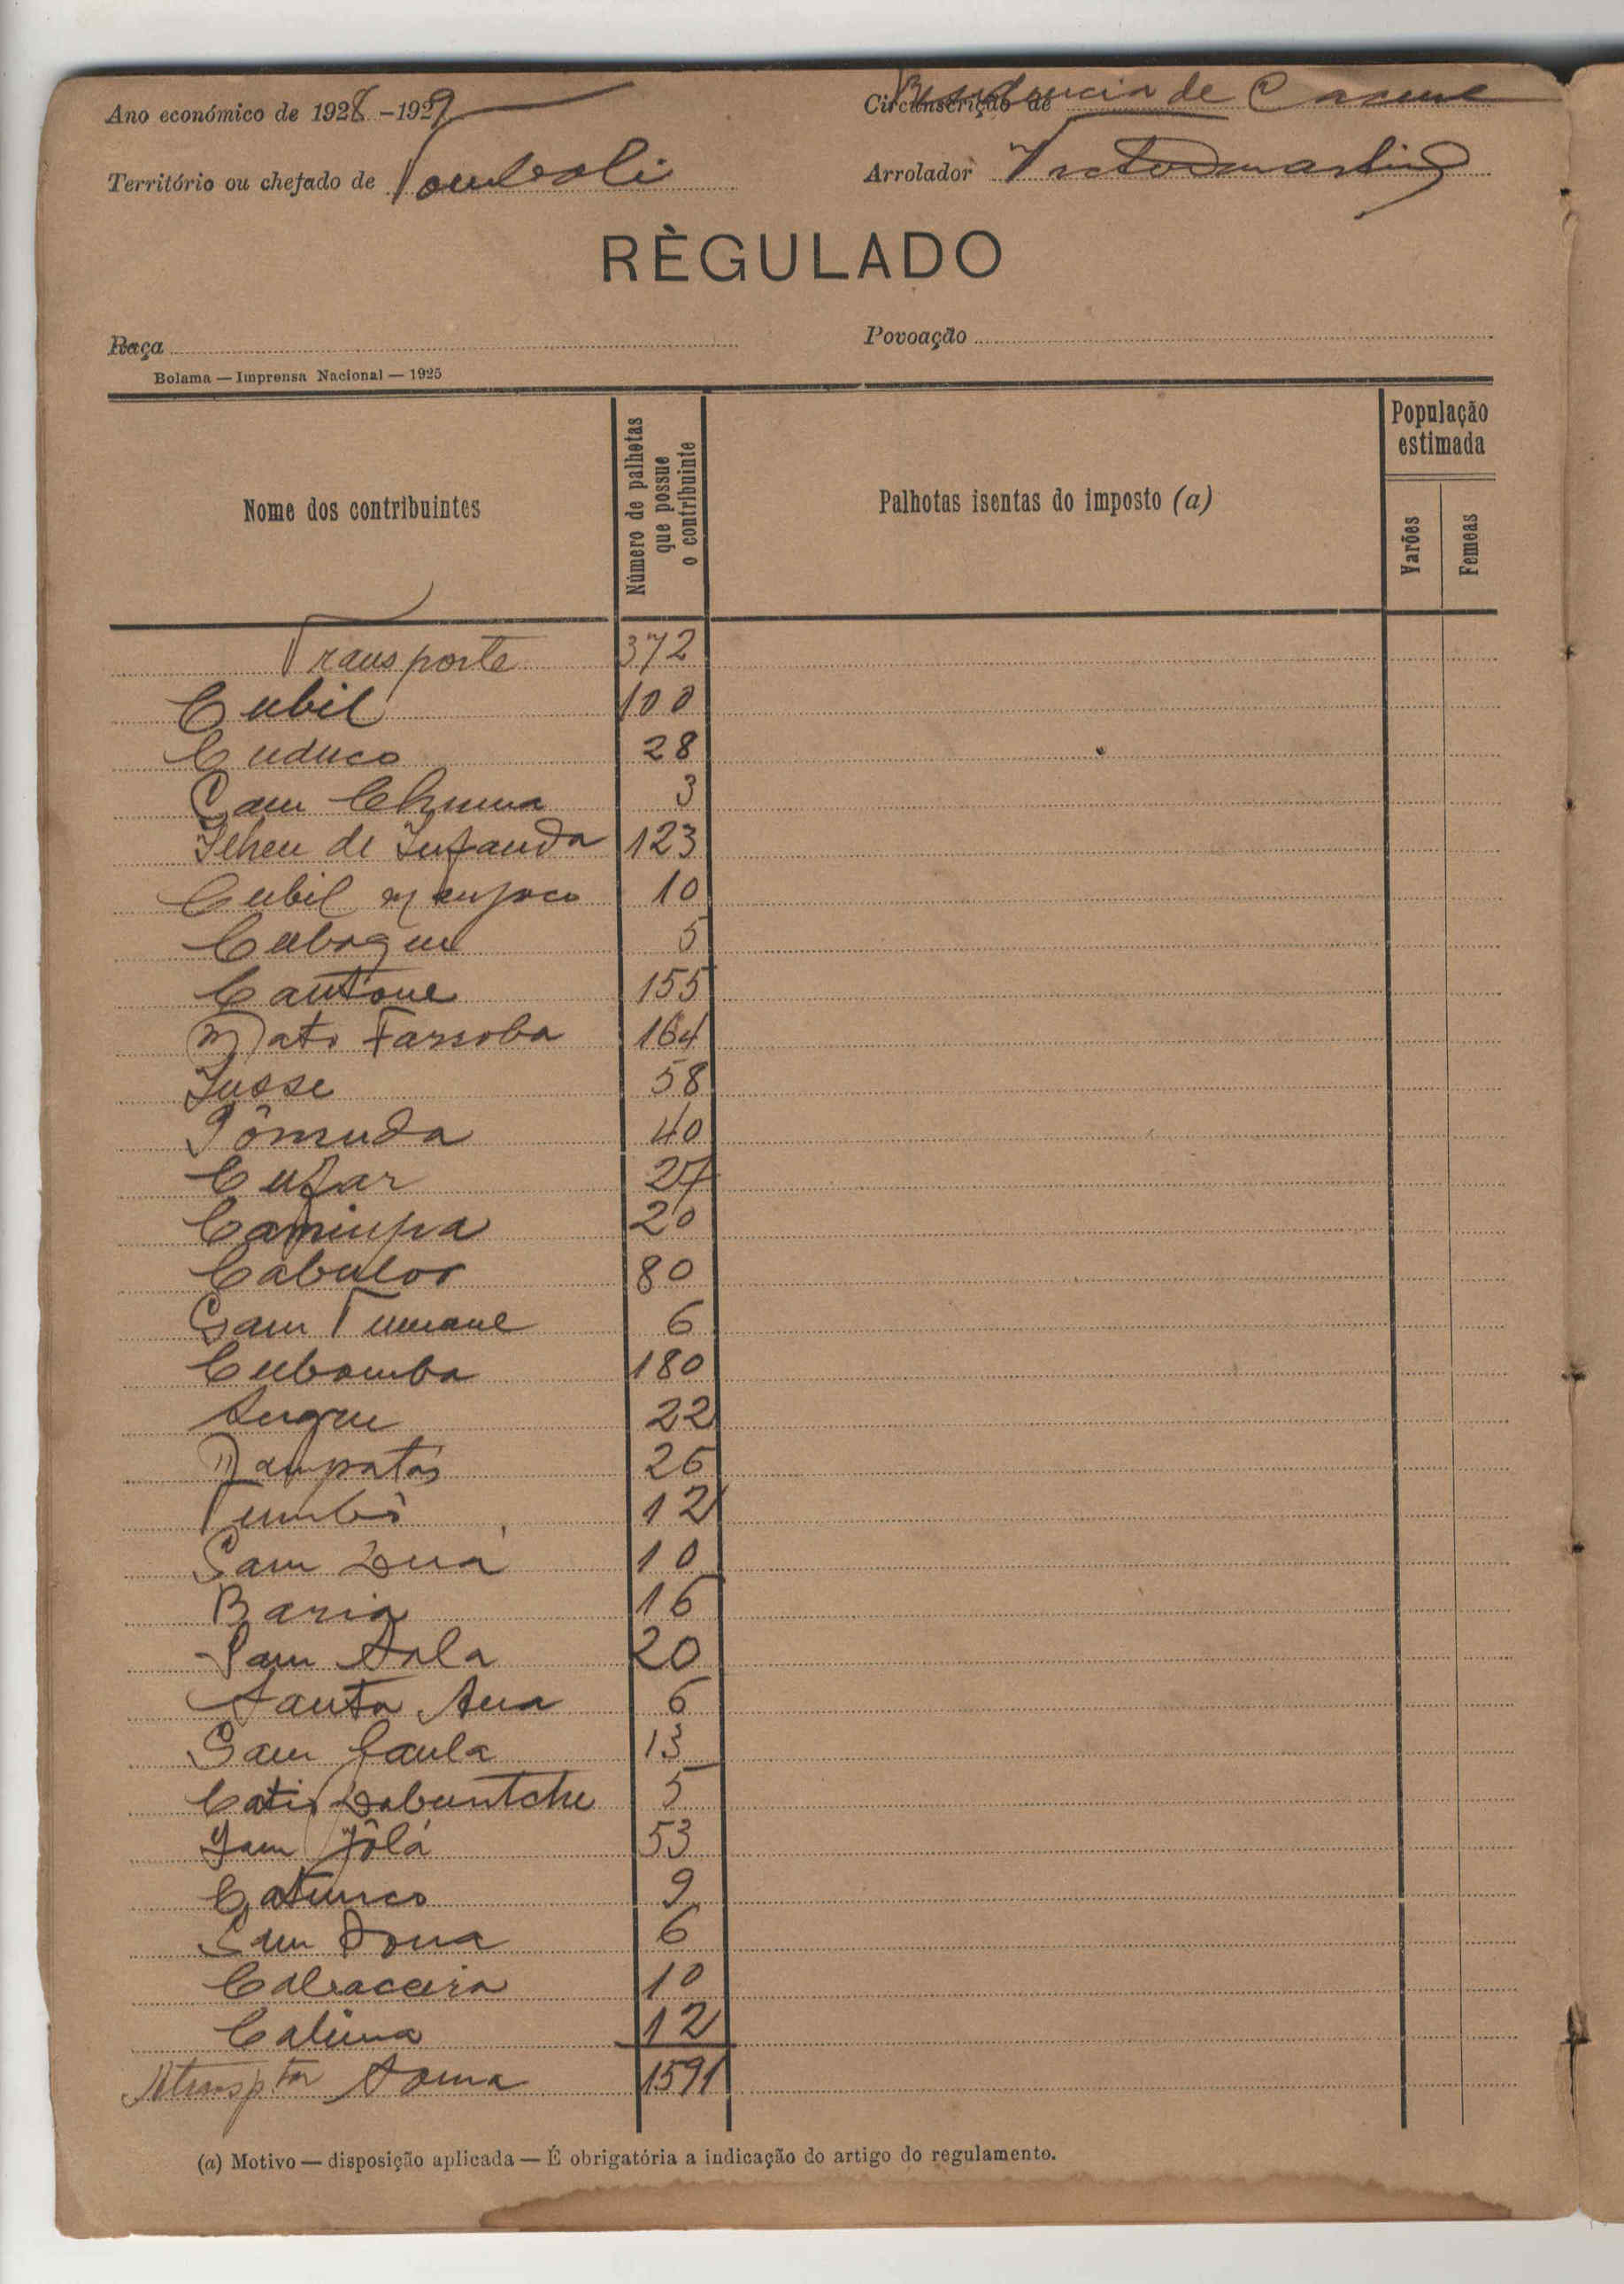 Ano económico de 1928-1929
Circunscrição de Residencia de Cacine
Território ou chefado de Tombali
Arrolador Victor Martins
RÈGULADO
Raça
Povoação
Bolama — Imprensa Nacional — 1925
Nome dos contribuintes
Número de palhotas que possue o contribuinte
Palhotas isentas do imposto (a)
População estimada
Varões
Femeas
Transporte 372
Cubil 100
Cuduco 28
Cam Chuma 3
Ilheu de Infanda 123
Cubil manjaco 10
Cuboque 5
Cantone 155
Mato Farroba 164
Iusse 58
Pômuda 40
Cufar 27
Camiupa 20
Cabulor 80
Gam Tumane 6
Cubomba 180
Sugue 22
Dampatás 26
Tumbô 12
Gam Duá 10
Baria 16
Sam Sala 20
Santa Ana 6
Gam Caula 13
Catis Dabuntche 5
Gam Jólá 53
Catunco 9
Gam Dona 6
Cabaceira 10
Calima 12
Soma 1591
(a) Motivo — disposição aplicada — É obrigatória a indicação do artigo do regulamento.